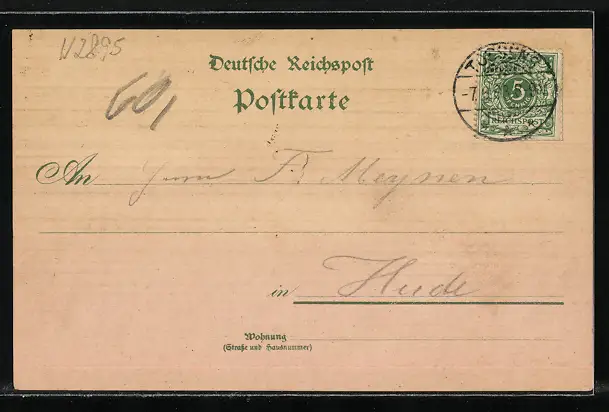 V2895
60,
Deutsche Reichspost
Postkarte
5
REICHSPOST
An Herrn F. Meynen
in Hude
Wohnung
(Straße und Hausnummer)